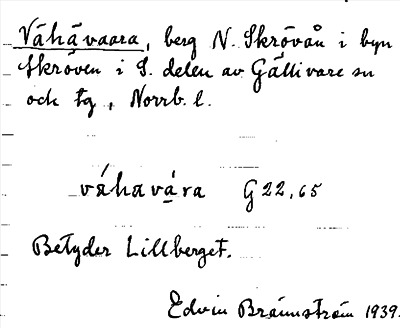 Vähävaara, berg N. Skrövån i byn
Skröven i S. delen av Gällivare sn
och tg, Norrb. l.
váhavára G 22, 65
Betyder Lillberget.
Edvin Brännström 1939.